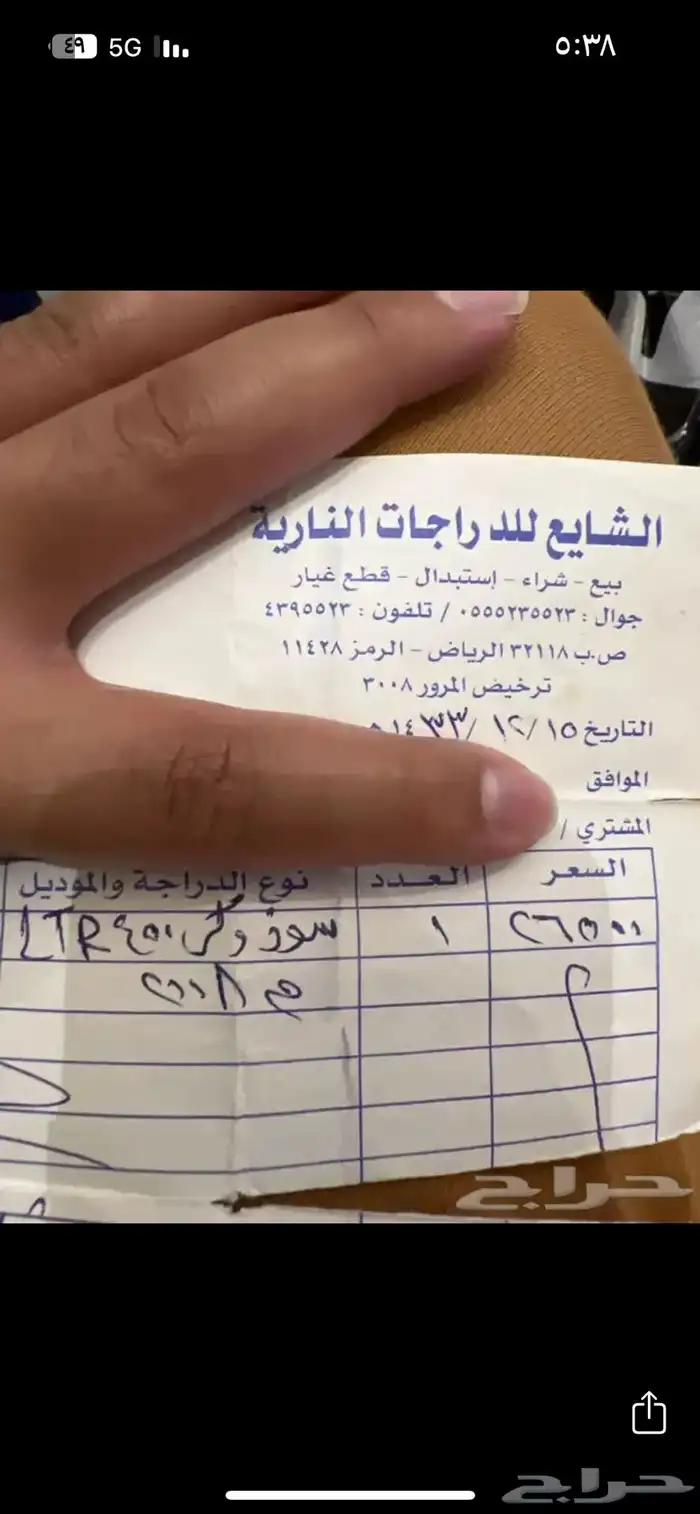 ٥:٣٨ 5G ٤٩
الشايع للدراجات النارية
بيع - شراء - إستبدال - قطع غيار
جوال : ٠٥٥٥٢٣٥٥٢٣ / تلفون : ٤٣٩٥٥٢٣
ص.ب ٣٢١١٨ الرياض - الرمز ١١٤٢٨
ترخيص المرور ٣٠٠٨
التاريخ ١٥ / ١٢ / ١٤٣٣
الموافق
المشتري /
السعر العدد نوع الدراجة والموديل
٢٦٥٠٠ ١ سوزوكي LTR ٤٥٠
م ٢٠٠٨
حراج
حراج